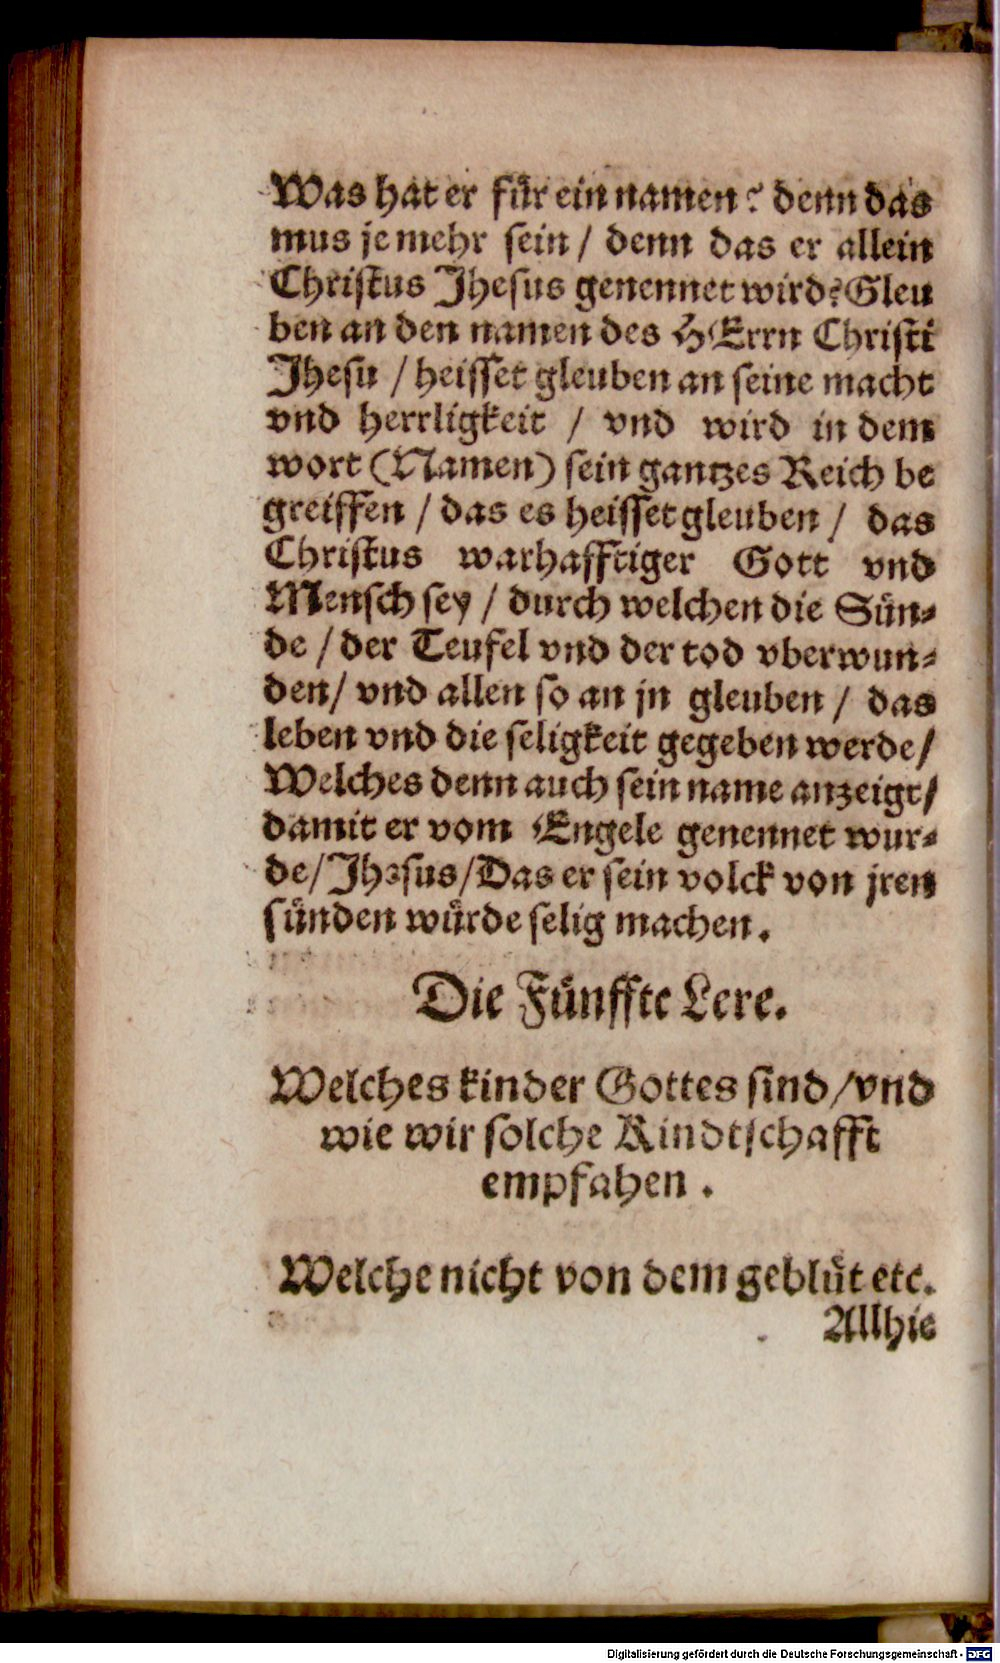 Was hat er für ein namen? denn das
mus je mehr sein / denn das er allein
Christus Jhesus genennet wird? Gleu
ben an den namen des HErrn Christi
Jhesu / heisset gleuben an seine macht
vnd herrligkeit / vnd wird in dem
wort (Namen) sein gantzes Reich be
greiffen / das es heisset gleuben / das
Christus warhafftiger Gott vnd
Mensch sey / durch welchen die Sün-
de / der Teufel vnd der tod vberwun-
den / vnd allen so an jn gleuben / das
leben vnd die seligkeit gegeben werde /
Welches denn auch sein name anzeigt /
damit er vom Engele genennet wur-
de / Jhesus / Das er sein volck von jren
sünden würde selig machen.
Die Fünffte Lere.
Welches kinder Gottes sind / vnd
wie wir solche Kindtschafft
empfahen.
Welche nicht von dem geblüt etc.
Allhie
Digitalisierung gefördert durch die Deutsche Forschungsgemeinschaft - DFG